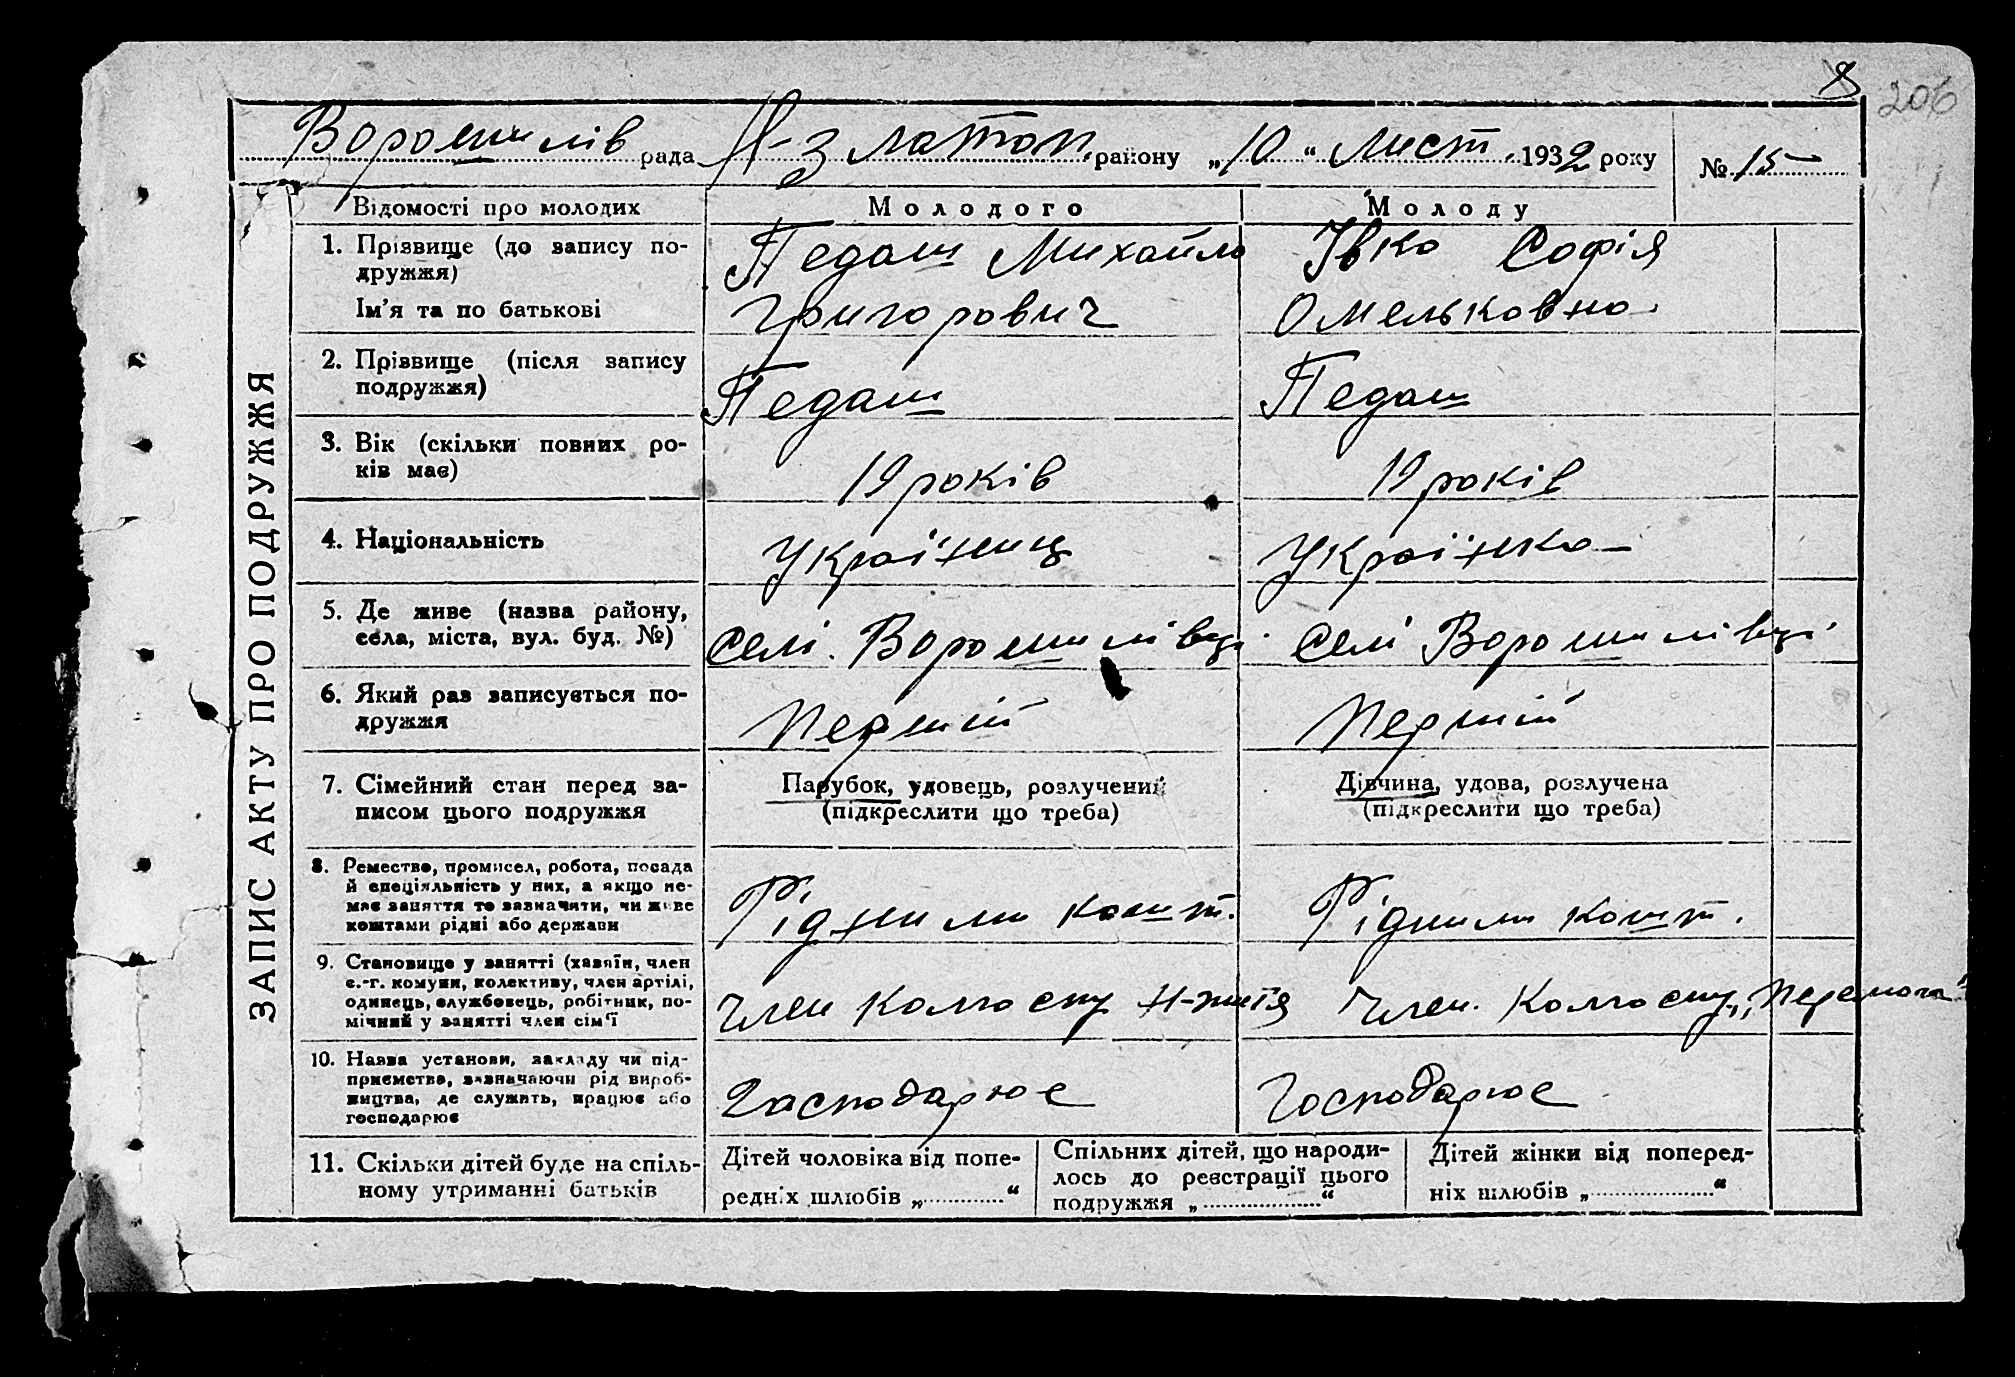 8
206
Ворошилів рада Н-Златоп. району „10“ лист. 1932 року № 15
ЗАПИС АКТУ ПРО ПОДРУЖЖЯ
Відомості про молодих
Молодого
Молоду
1. Прізвище (до запису по-
дружжя)
Ім’я та по батькові
Педаш Михайло
Григорович
Івко Софія
Омельковна
2. Прізвище (після запису
подружжя)
Педаш
Педаш
3. Вік (скільки повних ро-
ків має)
19 років
19 років
4. Національність
Україниц
Українка
5. Де живе (назва району,
села, міста, вул. буд. №)
Селі. Ворошилівці
Селі Ворошилівці
6. Який раз записується по-
дружжя
Перший
Перший
7. Сімейний стан перед за-
писом цього подружжя
Парубок, удовець, розлучений
(підкреслити що треба)
Дівчина, удова, розлучена
(підкреслити що треба)
8. Ремество, промисел, робота, посада
й спеціяльність у них, а якщо не-
має заняття то зазначити, чи живе
коштами рідні або держави
Рідними кошт.
Рідними кошт.
9. Становище у занятті (хазяїн, член
с.-г. комуни, колективу, член артілі,
одинець, службовець, робітник, по-
мічний у занятті член сім’ї
Член Колгоспу Н-життя
Член. Колгоспу „Перемога“
10. Назва установи, закладу чи під-
приємства, зазначаючи рід вироб-
ництва, де служить, працює або
господарює
Господарює
Господарює
11. Скільки дітей буде на спіль-
ному утриманні батьків
Дітей чоловіка від попе-
редніх шлюбів „............“
Спільних дітей, що народи-
лось до реєстрації цього
подружжя „..................“
Дітей жінки від поперед-
ніх шлюбів „..................“